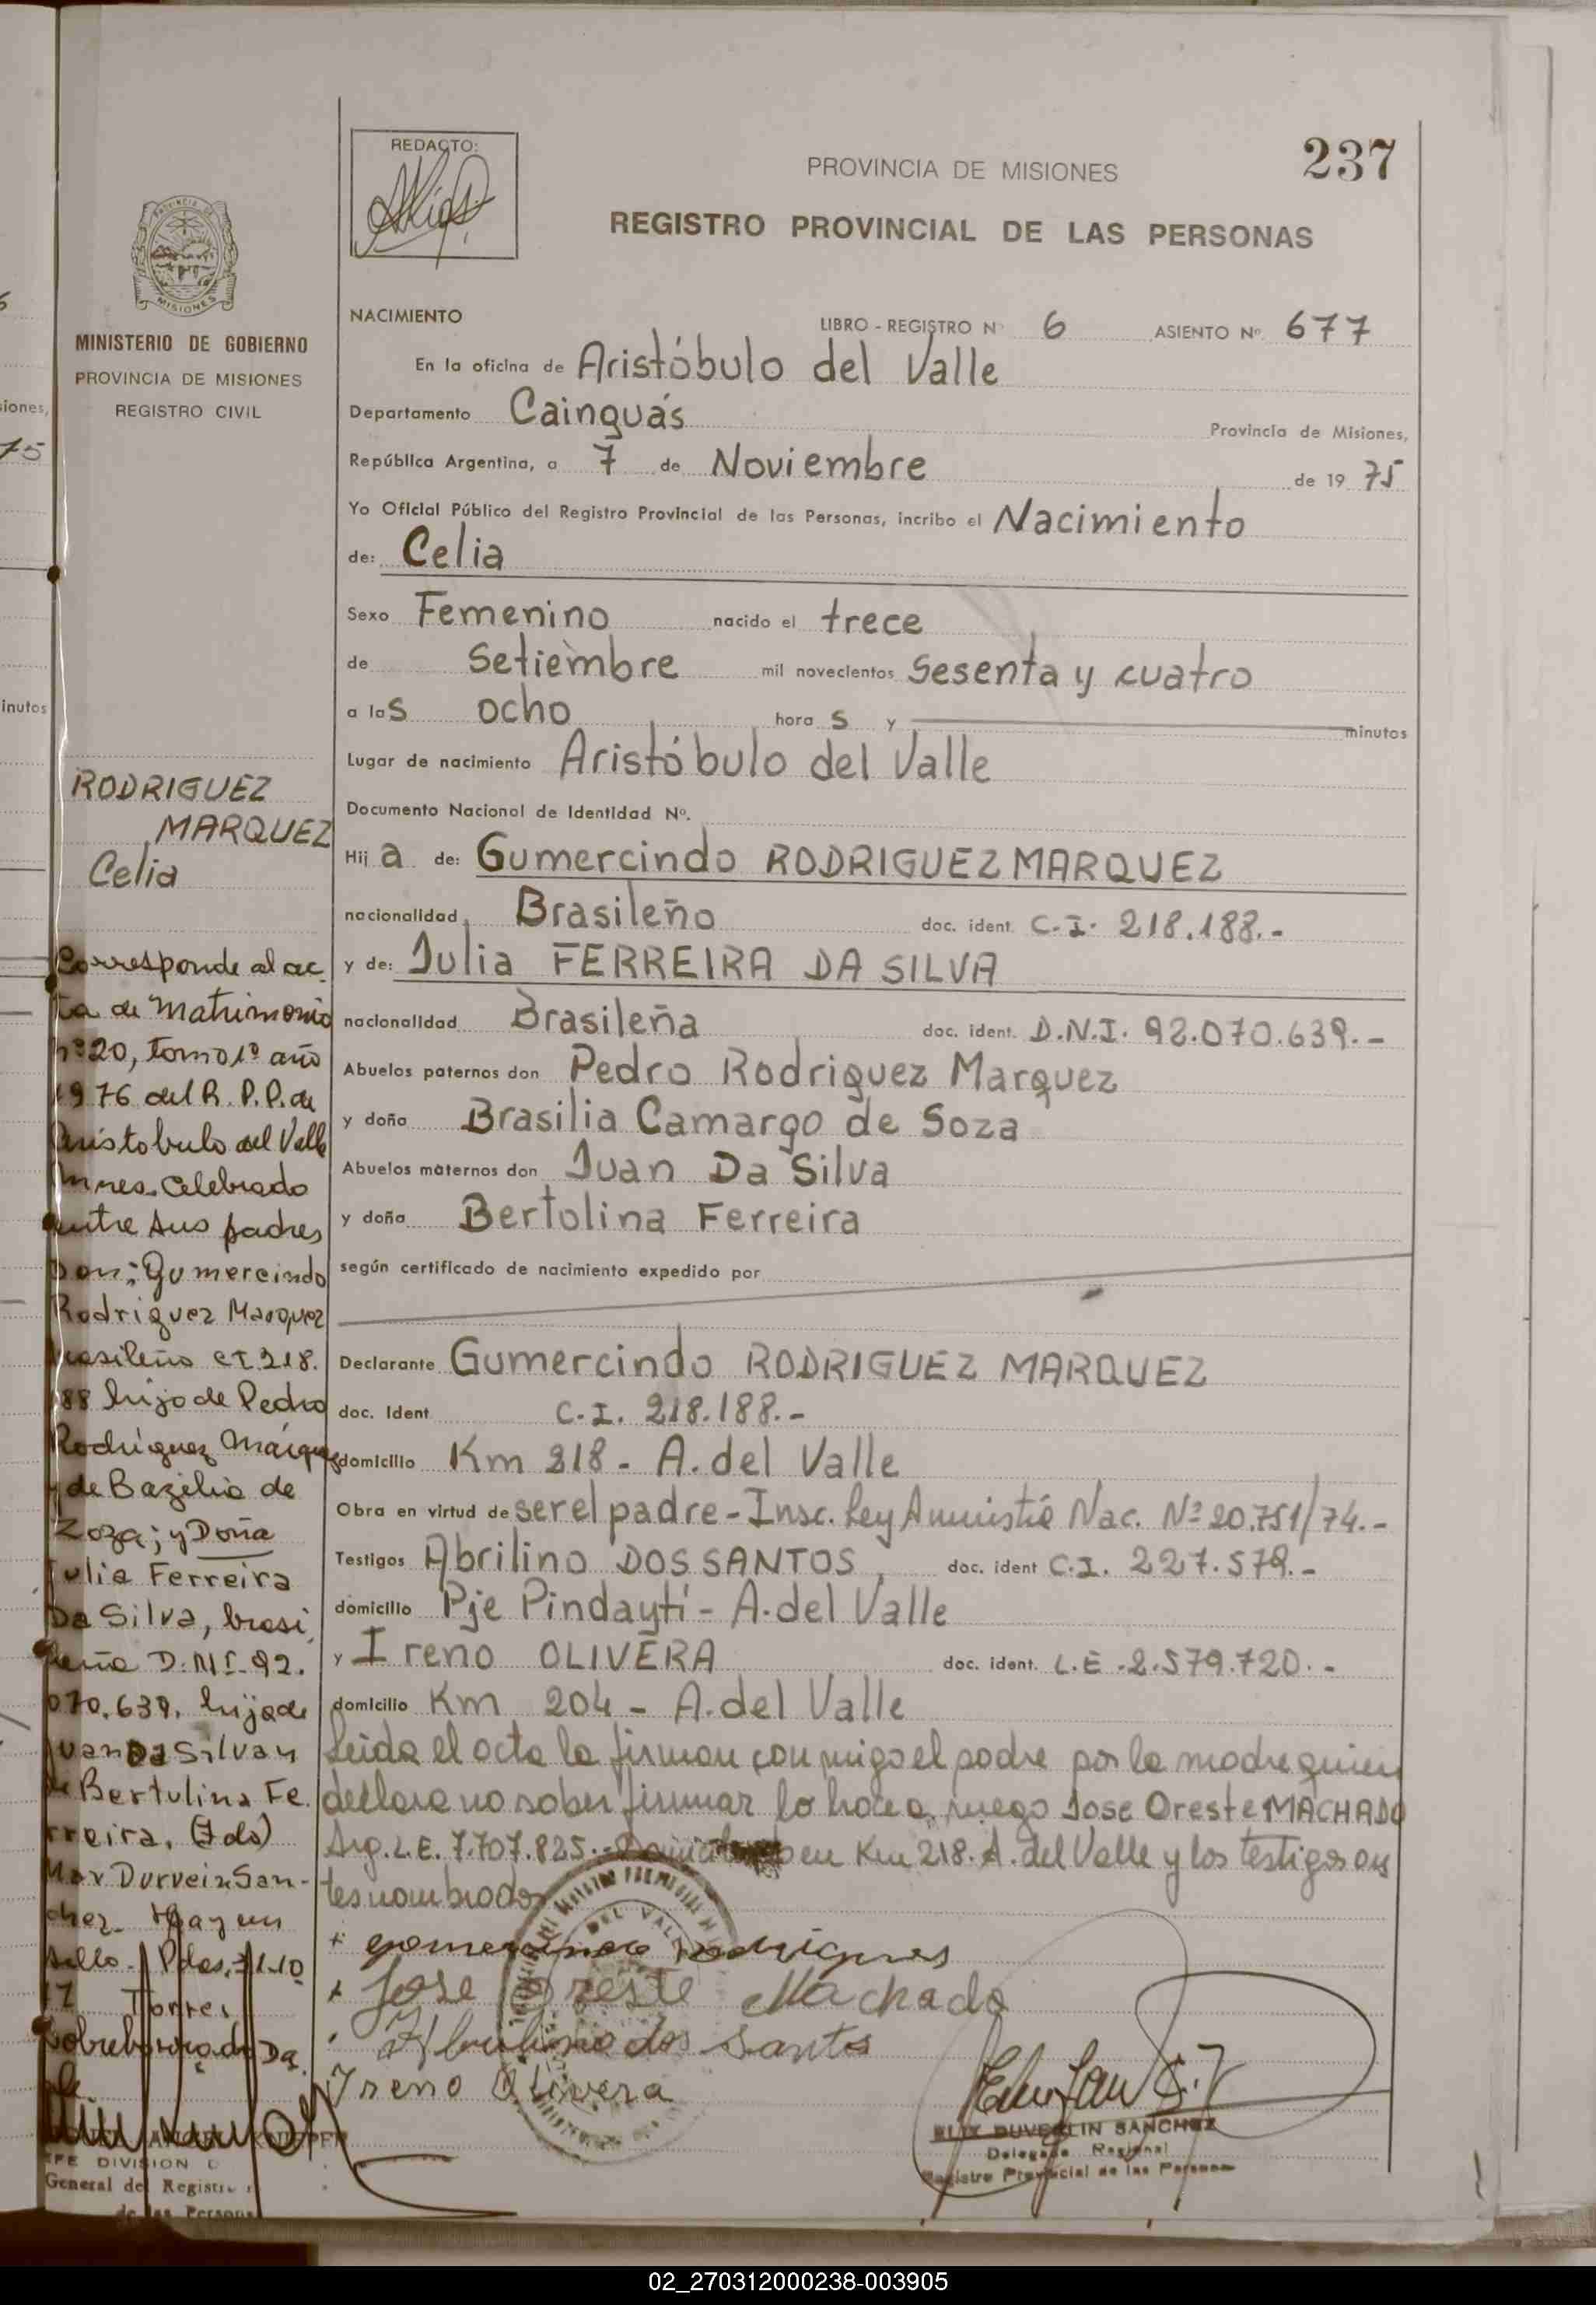 REDACTO:
PROVINCIA DE MISIONES
237
REGISTRO PROVINCIAL DE LAS PERSONAS
PROVINCIA DE
MISIONES
MINISTERIO DE GOBIERNO
PROVINCIA DE MISIONES
REGISTRO CIVIL
NACIMIENTO
LIBRO - REGISTRO Nº 6 ASIENTO Nº 677
En la oficina de Aristóbulo del Valle
Departamento Cainguás Provincia de Misiones,
República Argentina, a 7 de Noviembre de 19 75
Yo Oficial Público del Registro Provincial de las Personas, incribo el Nacimiento
de: Celia
Sexo Femenino nacido el trece
de Setiembre mil novecientos Sesenta y cuatro
a las ocho hora s y minutos
Lugar de nacimiento Aristóbulo del Valle
Documento Nacional de Identidad Nº.
Hij a de: Gumercindo RODRIGUEZ MARQUEZ
nacionalidad Brasileño doc. ident. C.I. 218.188.-
y de: Julia FERREIRA DA SILVA
nacionalidad Brasileña doc. ident. D.N.I. 92.070.639.-
Abuelos paternos don Pedro Rodriguez Marquez
y doña Brasilia Camargo de Soza
Abuelos maternos don Juan Da Silva
y doña Bertolina Ferreira
según certificado de nacimiento expedido por
Declarante Gumercindo RODRIGUEZ MARQUEZ
doc. Ident C.I. 218.188.-
domicilio Km 218 - A. del Valle
Obra en virtud de ser el padre - Insc. Ley Amnistía Nac. Nº 20.751/74.-
Testigos Abrilino DOS SANTOS, doc. ident C.I. 227.579.-
domicilio Pje Pindaytí - A. del Valle
y Ireno OLIVERA doc. ident. L.E. 2.579.720.-
domicilio Km 204 - A. del Valle
Leída el acta la firman conmigo el padre por la madre quien
declara no saber firmar lo hace a ruego Jose Oreste MACHADO
Arg. L.E. 7.707.825.- en Km 218. A. del Valle y los testigos an
tes nombrados
+ gomercindo rodrigues
+ Jose Oreste Machado
Abrilino dos Santos
Ireno Olivera
ELIX DUVERLIN SANCHEZ
Delegado Regional
Registro Provincial de las Personas
RODRIGUEZ
MARQUEZ
Celia
Corresponde al ac
ta de Matrimonio
nº 20, tomo 1º año
1976 del R.P.P. de
Aristobulo del Valle
Mnes. Celebrado
entre sus padres
Don: Gumercindo
Rodriguez Marquez
brasileño CI 218.
188 hijo de Pedro
Rodriguez Márquez
y de Bazilia de
Zoza; y Doña
Julia Ferreira
Da Silva, brasi
leña D.N.I. 92.
070.639, hija de
Juan Da Silva y
de Bertulina Fe
rreira. (Fdo)
San-
chez. Hay un
sello. Pdas,
Torres
Sobreborrado Da
DIVISION
General del Registro
de las Persona
siones,
75
inutos
02_270312000238-003905